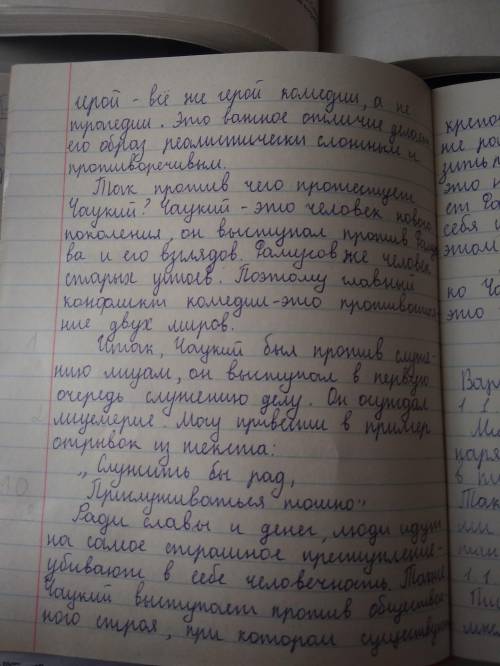 герой - всё же герой комедии, а не
трагедии. Это важное отличие делает
его образ реалистически сложным и
противоречивым.
Так против чего протестует
Чацкий? Чацкий - это человек нового
поколения, он выступал против Фамусо
ва и его взглядов. Фамусов же человек
старых устоев. Поэтому главный
конфликт комедии - это противостоя-
ние двух миров.
Итак, Чацкий был против служе-
нию лицам, он выступал в первую
очередь служению делу. Он осуждал
лицемерие. Могу привести в пример
отрывок из текста:
„Служить бы рад,
Прислуживаться тошно"
Ради славы и денег, люди идут
на самое страшное преступление-
убивают в себе человечность. Также
Чацкий выступает против обществен-
ного строя, при котором существуют
крепос
же
зить
это
ет
себя и
этом
ко Ча
это
Вар
1. 1.
Ми
наря
в
Так
им
1. 1.